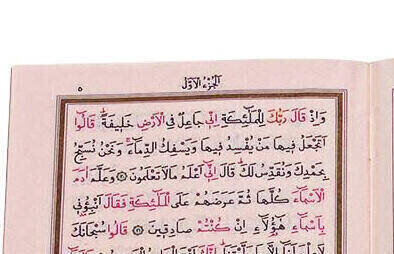 الجزء الاول
٥
وَاِذْ قَالَ رَبُّكَ لِلْمَلٰٓئِكَةِ اِنّ۪ي جَاعِلٌ فِي الْاَرْضِ خَل۪يفَةًۜ قَالُٓوا
اَتَجْعَلُ ف۪يهَا مَنْ يُفْسِدُ ف۪يهَا وَيَسْفِكُ الدِّمَٓاءَۚ وَنَحْنُ نُسَبِّحُ
بِحَمْدِكَ وَنُقَدِّسُ لَكَۜ قَالَ اِنّ۪ٓي اَعْلَمُ مَا لَا تَعْلَمُونَ ۝ وَعَلَّمَ اٰدَمَ
الْاَسْمَٓاءَ كُلَّهَا ثُمَّ عَرَضَهُمْ عَلَى الْمَلٰٓئِكَةِ فَقَالَ اَنْبِؤُ۫ن۪ي
بِاَسْمَٓاءِ هٰٓؤُ۬لَٓاءِ اِنْ كُنْتُمْ صَادِق۪ينَ ۝ قَالُوا سُبْحَانَكَ